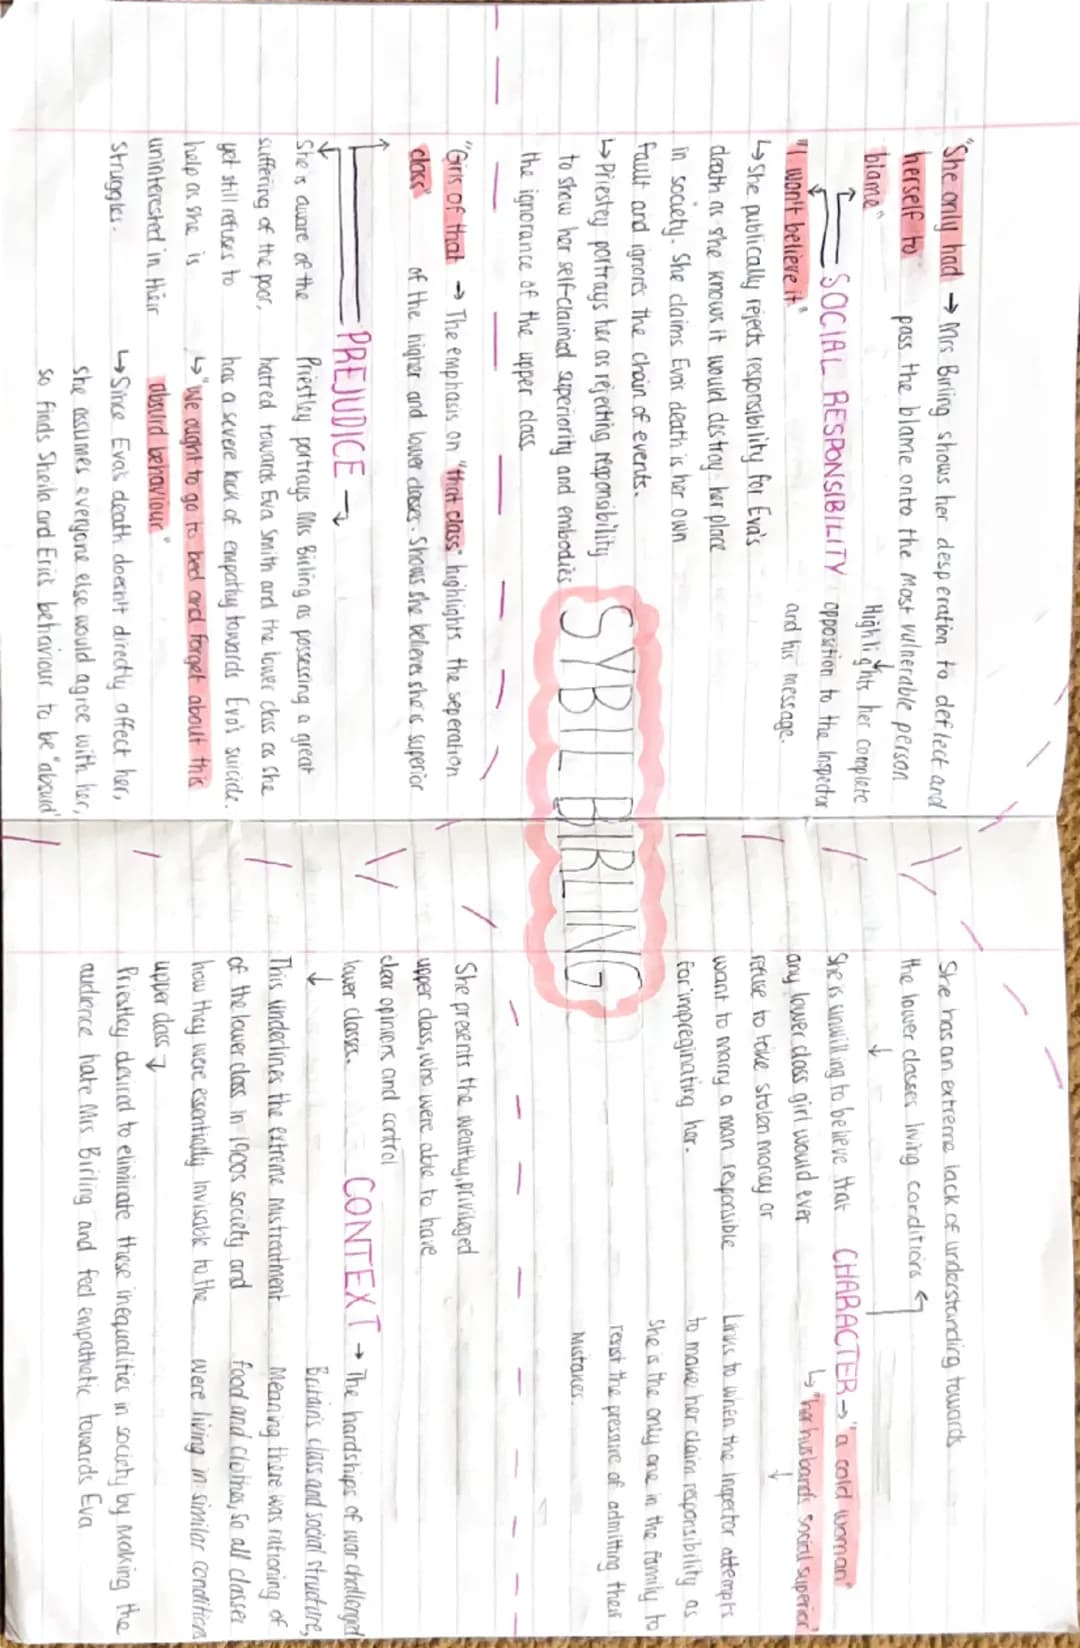 "She only had → Mrs Birling shows her desperation to deflect and
herself to pass the blame onto the most vulnerable person
blame"
Highlights her complete
opposition to the Inspector
and his message.
SOCIAL RESPONSIBILITY
"I won't believe it"
↳ She publically rejects responsibility for Eva's
death as she knows it would destroy her place
in society. She claims Eva's death is her own
fault and ignores the chain of events.
↳ Priestey portrays her as rejecting responsibility
to show her self-claimed superiority and embodies
the ignorance of the upper class
SYBIL BIRLING
She has an extreme lack of understanding towards
the lower classes living conditions
CHARACTER → "a cold woman"
↳ "her husband's social superior"
She is unwilling to believe that
any lower class girl would ever
refuse to take stolen money or
want to marry a man responsible
for impreginating her.
Links to when the Inspector attempts
to make her claim responsibility as
she is the only one in the family to
resist the pressure of admitting their
mistakes.
"Girls of that → The emphasis on "that class" highlights the seperation
class" of the higher and lower classes. Shows she believes she is superior
PREJUDICE →
She is aware of the
suffering of the poor,
yet still refuses to
help as she is
uninterested in their
struggles.
Priestley portrays Mrs Birling as possessing a great
hatred towards Eva Smith and the lower class as she
has a severe lack of empathy towards Eva's suicide.
↳ "We ought to go to bed and forget about this
absurd behaviour"
↳ Since Eva's death doesn't directly affect her,
she assumes everyone else would agree with her,
so finds Sheila and Eric's behaviour to be "absurd"
She presents the wealthy, privileged
upper class, who were able to have
clear opinions and control
lower classes.
CONTEXT → The hardships of war challenged
Britain's class and social structure,
Meaning there was rationing of
food and clothes, so all classes
were living in similar conditions
This underlines the extreme mistreatment
of the lower class in 1900s society and
how they were essentially invisable to the
upper class
Priestley desired to eliminate these inequalities in society by making the
audience hate Mrs Birling and feel empathetic towards Eva